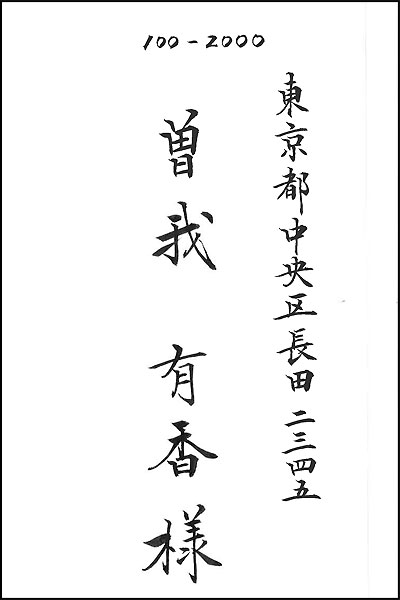 100-2000
東京都中央区長田二三四五
曽我 有香様